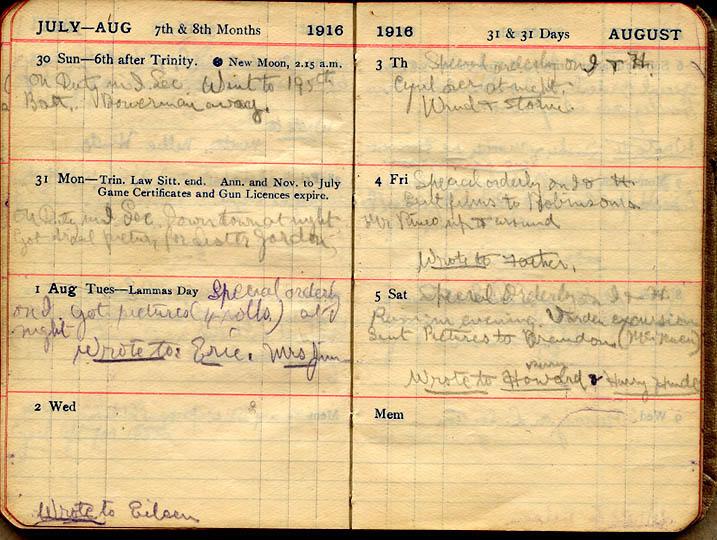 JULY—AUG 7th & 8th Months 1916
30 Sun—6th after Trinity. ● New Moon, 2.15 a.m.
On Duty in I Sec. Went to 195th
Batt. Bowerman away.
31 Mon—Trin. Law Sitt. end. Ann. and Nov. to July
Game Certificates and Gun Licences expire.
On Duty in I Sec. Down town at night
Got drsel picture for Sister Gordon
1 Aug Tues—Lammas Day Special orderly
on I. got pictures (4 rolls) at
night
Wrote to: Eric. Mrs Jim
2 Wed
Wrote to Eileen
1916 31 & 31 Days AUGUST
3 Th Special orderly on I & H.
at night.
Wind & storm.
4 Fri Special orderly on I & H.
films to Robinsons
up & around
Wrote to Father.
5 Sat Special Orderly on I & H.
evening. excursion
Sent Pictures to Brandon
Wrote to Howard & Harry
Mem